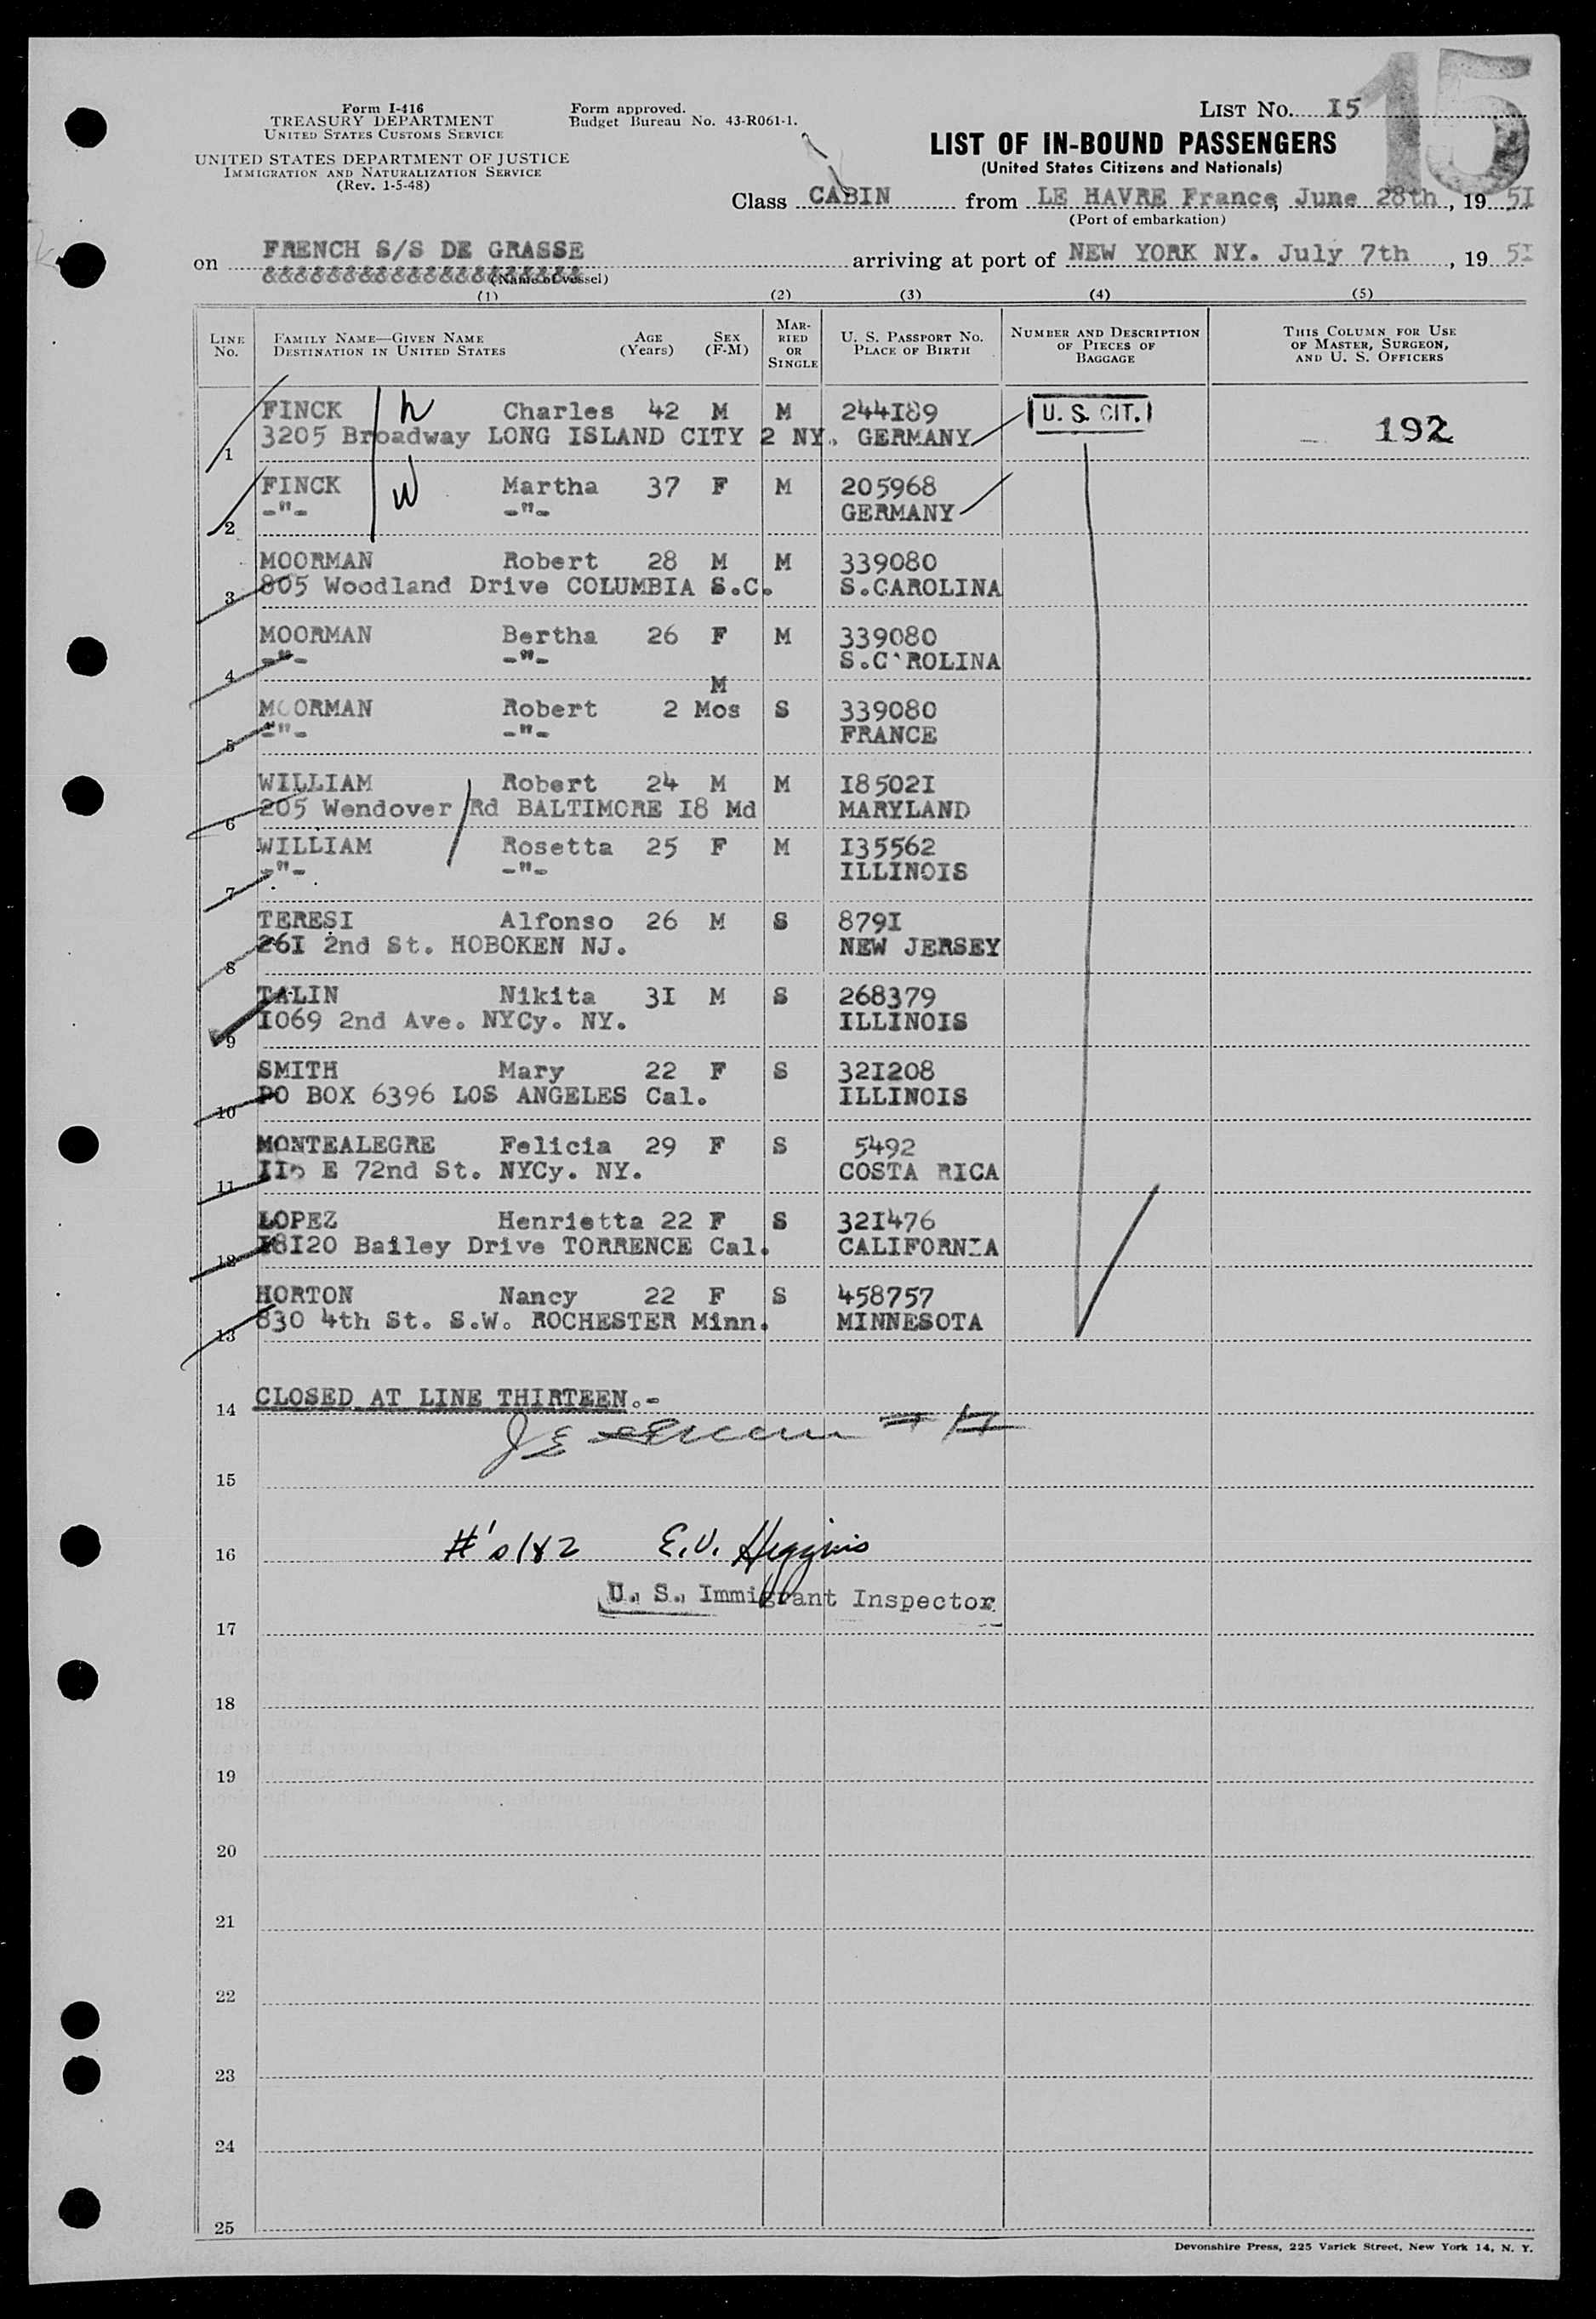 Form I-416
TREASURY DEPARTMENT
UNITED STATES CUSTOMS SERVICE
UNITED STATES DEPARTMENT OF JUSTICE
IMMIGRATION AND NATURALIZATION SERVICE
(Rev. 1-5-48)
Form approved.
Budget Bureau No. 43-R061-1.
LIST NO. I5
15
LIST OF IN-BOUND PASSENGERS
(United States Citizens and Nationals)
Class CABIN from LE HAVRE France, June 28th, 19 5I
(Port of embarkation)
on FRENCH S/S DE GRASSE arriving at port of NEW YORK NY. July 7th, 19 5I
&&&&&&&&&&&&&&&&&&&&
(Name of vessel)
(1) (2) (3) (4) (5)
LINE NO. FAMILY NAME—GIVEN NAME DESTINATION IN UNITED STATES AGE (Years) SEX (F-M) MARRIED OR SINGLE U. S. PASSPORT NO. PLACE OF BIRTH NUMBER AND DESCRIPTION OF PIECES OF BAGGAGE THIS COLUMN FOR USE OF MASTER, SURGEON, AND U. S. OFFICERS
FINCK Charles 42 M M 244I89 U. S. CIT.
1 3205 Broadway LONG ISLAND CITY 2 NY. GERMANY 192
FINCK W Martha 37 F M 205968
2 -"- -"- GERMANY
MOORMAN Robert 28 M M 339080
3 805 Woodland Drive COLUMBIA S.C. S.CAROLINA
MOORMAN Bertha 26 F M 339080
4 -"- -"- S.C ROLINA
M
MOORMAN Robert 2 Mos S 339080
5 -"- -"- FRANCE
WILLIAM Robert 24 M M I8502I
6 205 Wendover Rd BALTIMORE I8 Md MARYLAND
WILLIAM Rosetta 25 F M I35562
7 -"- -"- ILLINOIS
TERESI Alfonso 26 M S 879I
8 26I 2nd St. HOBOKEN NJ. NEW JERSEY
TALIN Nikita 3I M S 268379
9 I069 2nd Ave. NYCy. NY. ILLINOIS
SMITH Mary 22 F S 32I208
10 PO BOX 6396 LOS ANGELES Cal. ILLINOIS
MONTEALEGRE Felicia 29 F S 5492
11 E 72nd St. NYCy. NY. COSTA RICA
LOPEZ Henrietta 22 F S 32I476
12 I8I20 Bailey Drive TORRENCE Cal. CALIFORNIA
HORTON Nancy 22 F S 458757
13 830 4th St. S.W. ROCHESTER Minn. MINNESOTA
14 CLOSED AT LINE THIRTEEN.-
15
16 #'s 1 & 2 E. V. Higgins
U. S. Immigrant Inspector
17
18
19
20
21
22
23
24
25
Devonshire Press, 225 Varick Street, New York 14, N. Y.